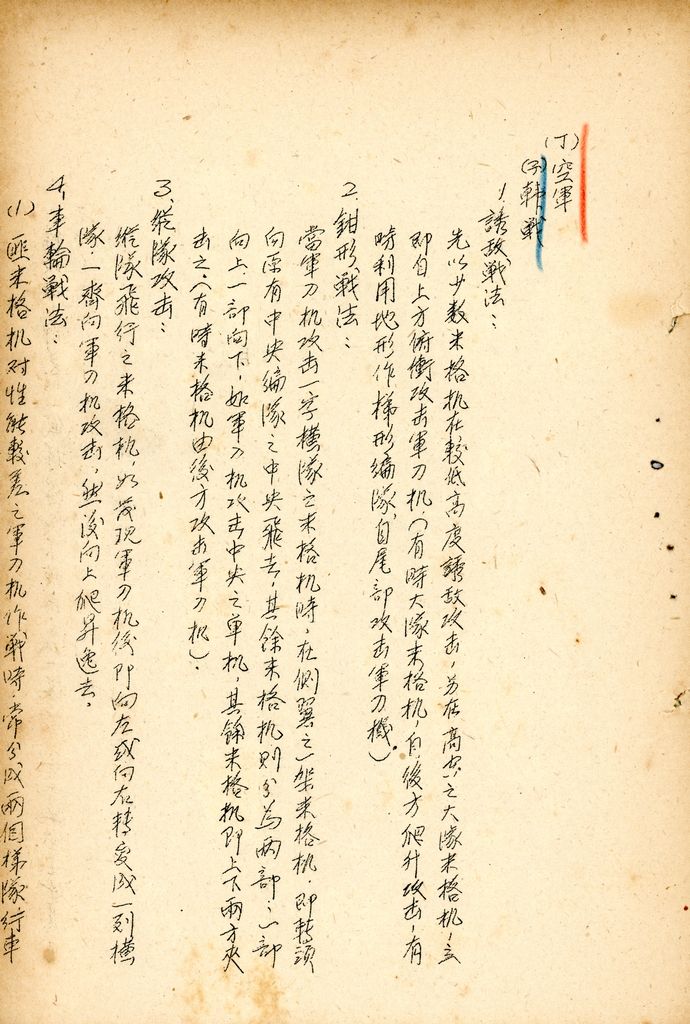 (丁)空軍
(子)韓戰
1.誘敌戰法：
先以少数米格机在較低高度誘敌攻击，另在高空之大隊米格机，立
即自上方俯衝攻击軍刀机，(有時大隊米格机，自後方爬升攻击，有
時利用地形作梯形編隊，自尾部攻击軍刀機)。
2.鉗形戰法：
當軍刀机攻击一字橫隊之米格机時，在側翼之一架米格机，即轉頭
向原有中央編隊之中央飛去，其餘米格机則分為兩部，一部
向上，一部向下，如軍刀机攻击中央之单机，其餘米格机即上下兩方夾
击之，(有時米格机由後方攻击軍刀机)。
3.縱隊攻击：
縱隊飛行之米格机，如發現軍刀机後，即向左或向右轉变成一列橫
隊，一齊向軍刀机攻击，然後向上爬昇逸去。
4.車輪戰法：
(1)匪米格机对性能較差之軍刀机作戰時，常分成兩個梯隊行車